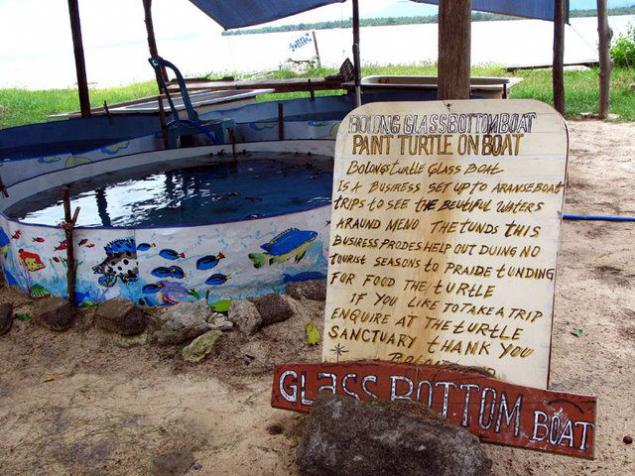 BOLONG GLASSBOTTOMBOAT
PAINT TURTLE ON BOAT
BOLONGSTURTLE GLASS BOAT
IS A BUSINESS SET UP TO ARANSEBOAT
TRIPS TO SEE THE BEUTIFUL WATERS
ARAUND MENO THE TUNDS THIS
BUSINESS PRODES HELP OUT DUING NO
TOURIST SEASONS TO PRAIDE TUNDING
FOR FOOD THE TURTLE
IF YOU LIKE TO TAKE A TRIP
ENQUIRE AT THE TURTLE
SANCTUARY THANK YOU
GLASS BOTTOM BOAT